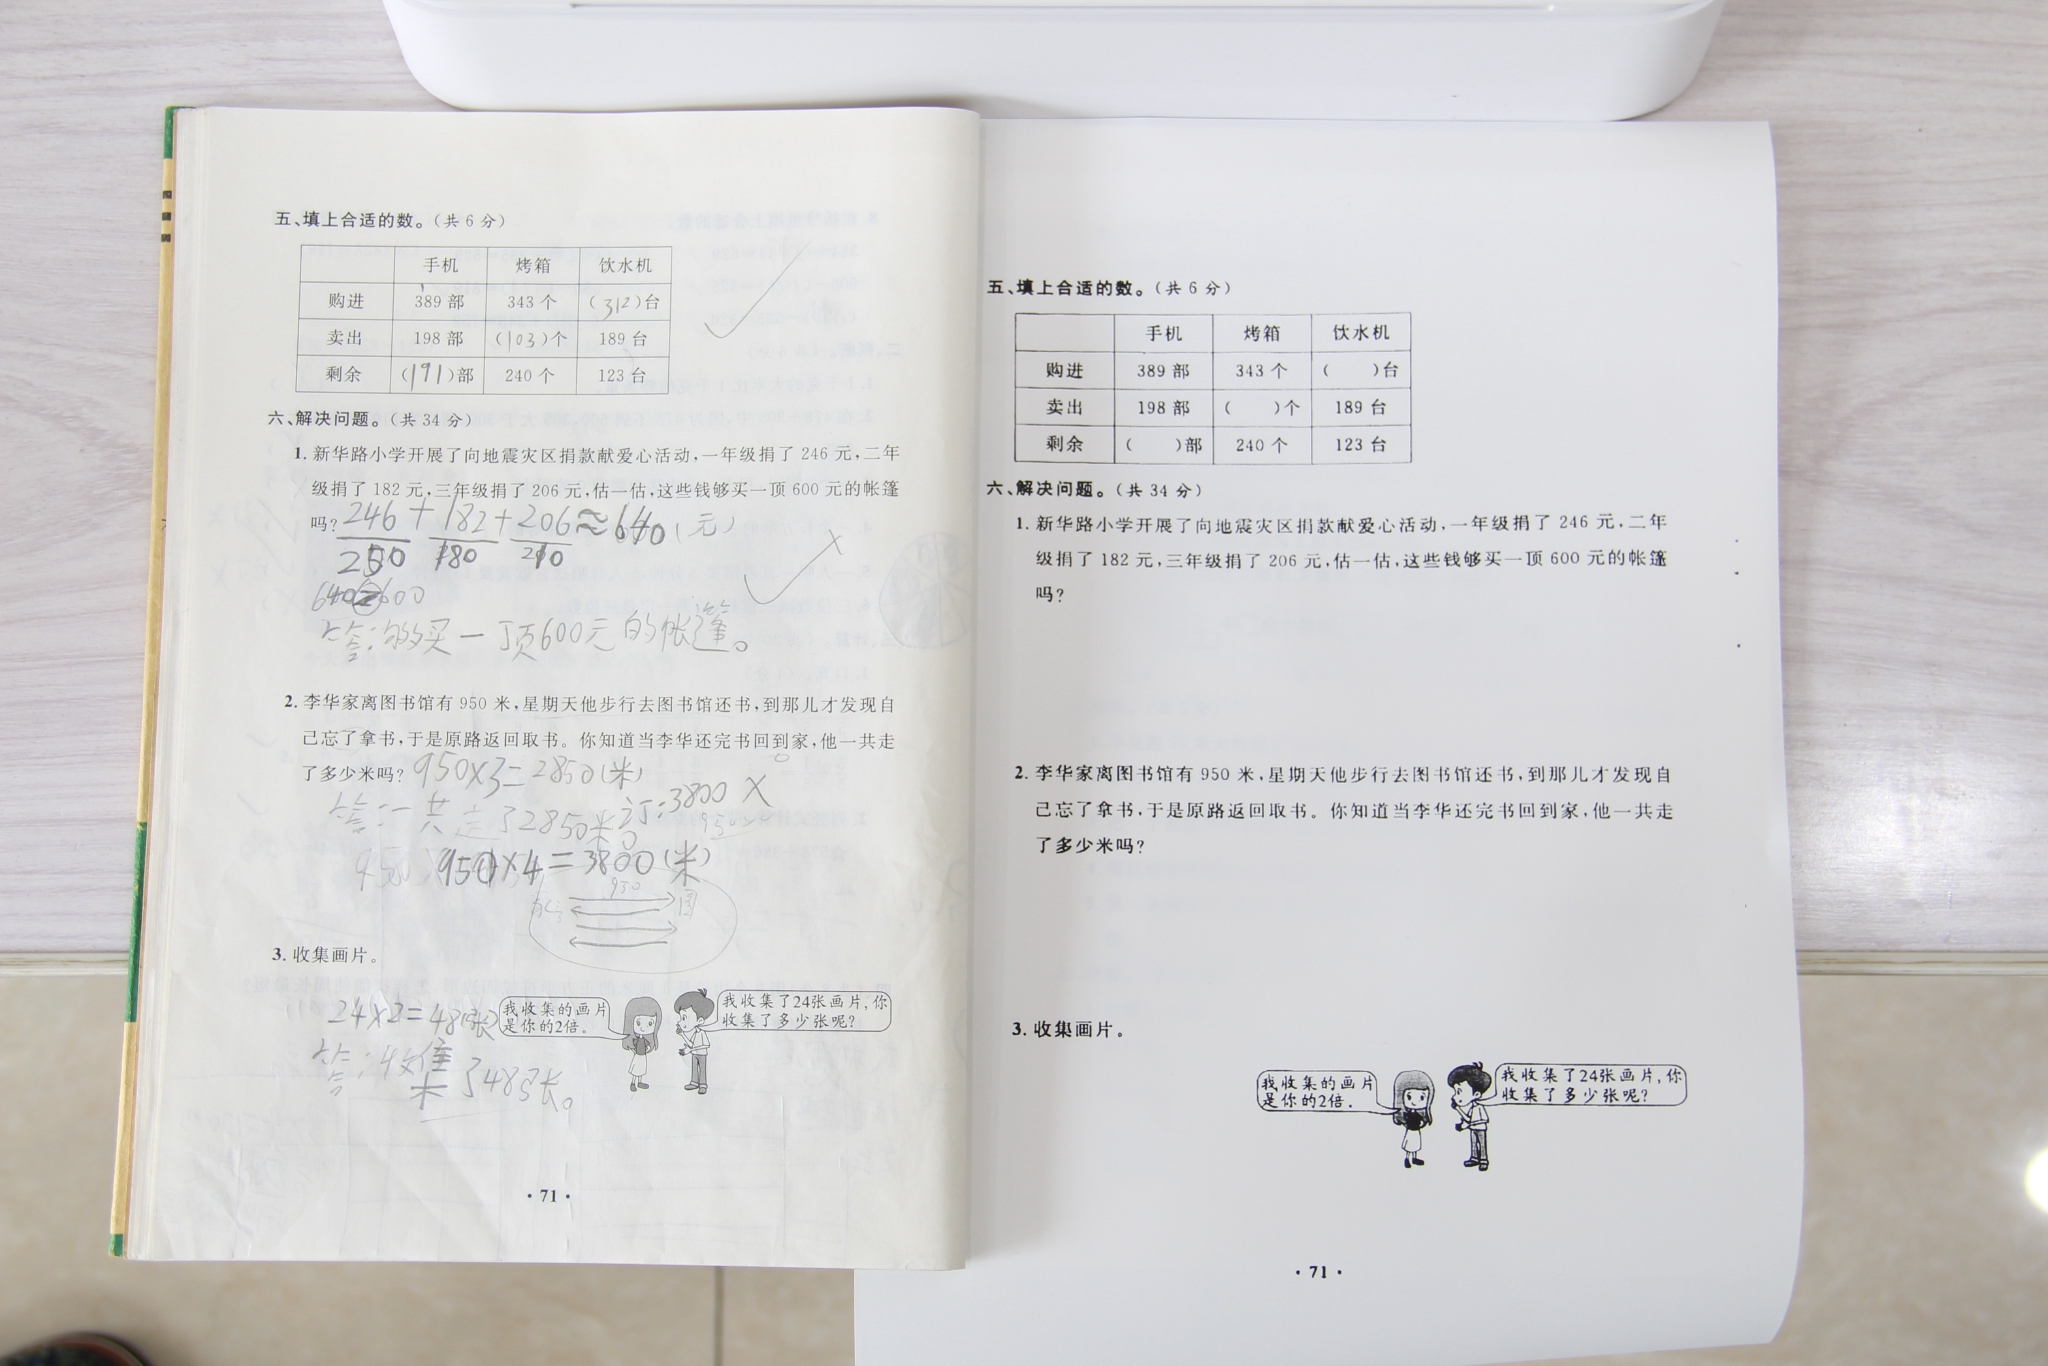 五、填上合适的数。(共 6 分)
手机 烤箱 饮水机
购进 389 部 343 个 (312)台
卖出 198 部 (103)个 189 台
剩余 (191)部 240 个 123 台
六、解决问题。(共 34 分)
1. 新华路小学开展了向地震灾区捐款献爱心活动,一年级捐了 246 元,二年
级捐了 182 元,三年级捐了 206 元,估一估,这些钱够买一顶 600 元的帐篷
吗? 246+182+206≈640(元)
250 180 210
答:够买一顶600元的帐篷。
2. 李华家离图书馆有 950 米,星期天他步行去图书馆还书,到那儿才发现自
己忘了拿书,于是原路返回取书。你知道当李华还完书回到家,他一共走
了多少米吗? 950×3=2850(米)
答:一共走了2850米。订:3800
950×4=3800(米)
950
图
3. 收集画片。
24×2=48(张)
我收集的画片
是你的2倍.
我收集了24张画片,你
收集了多少张呢?
答:收集了48张。
· 71 ·
五、填上合适的数。(共 6 分)
手机 烤箱 饮水机
购进 389 部 343 个 ( )台
卖出 198 部 ( )个 189 台
剩余 ( )部 240 个 123 台
六、解决问题。(共 34 分)
1. 新华路小学开展了向地震灾区捐款献爱心活动,一年级捐了 246 元,二年
级捐了 182 元,三年级捐了 206 元,估一估,这些钱够买一顶 600 元的帐篷
吗?
2. 李华家离图书馆有 950 米,星期天他步行去图书馆还书,到那儿才发现自
己忘了拿书,于是原路返回取书。你知道当李华还完书回到家,他一共走
了多少米吗?
3. 收集画片。
我收集的画片
是你的2倍.
我收集了24张画片,你
收集了多少张呢?
· 71 ·